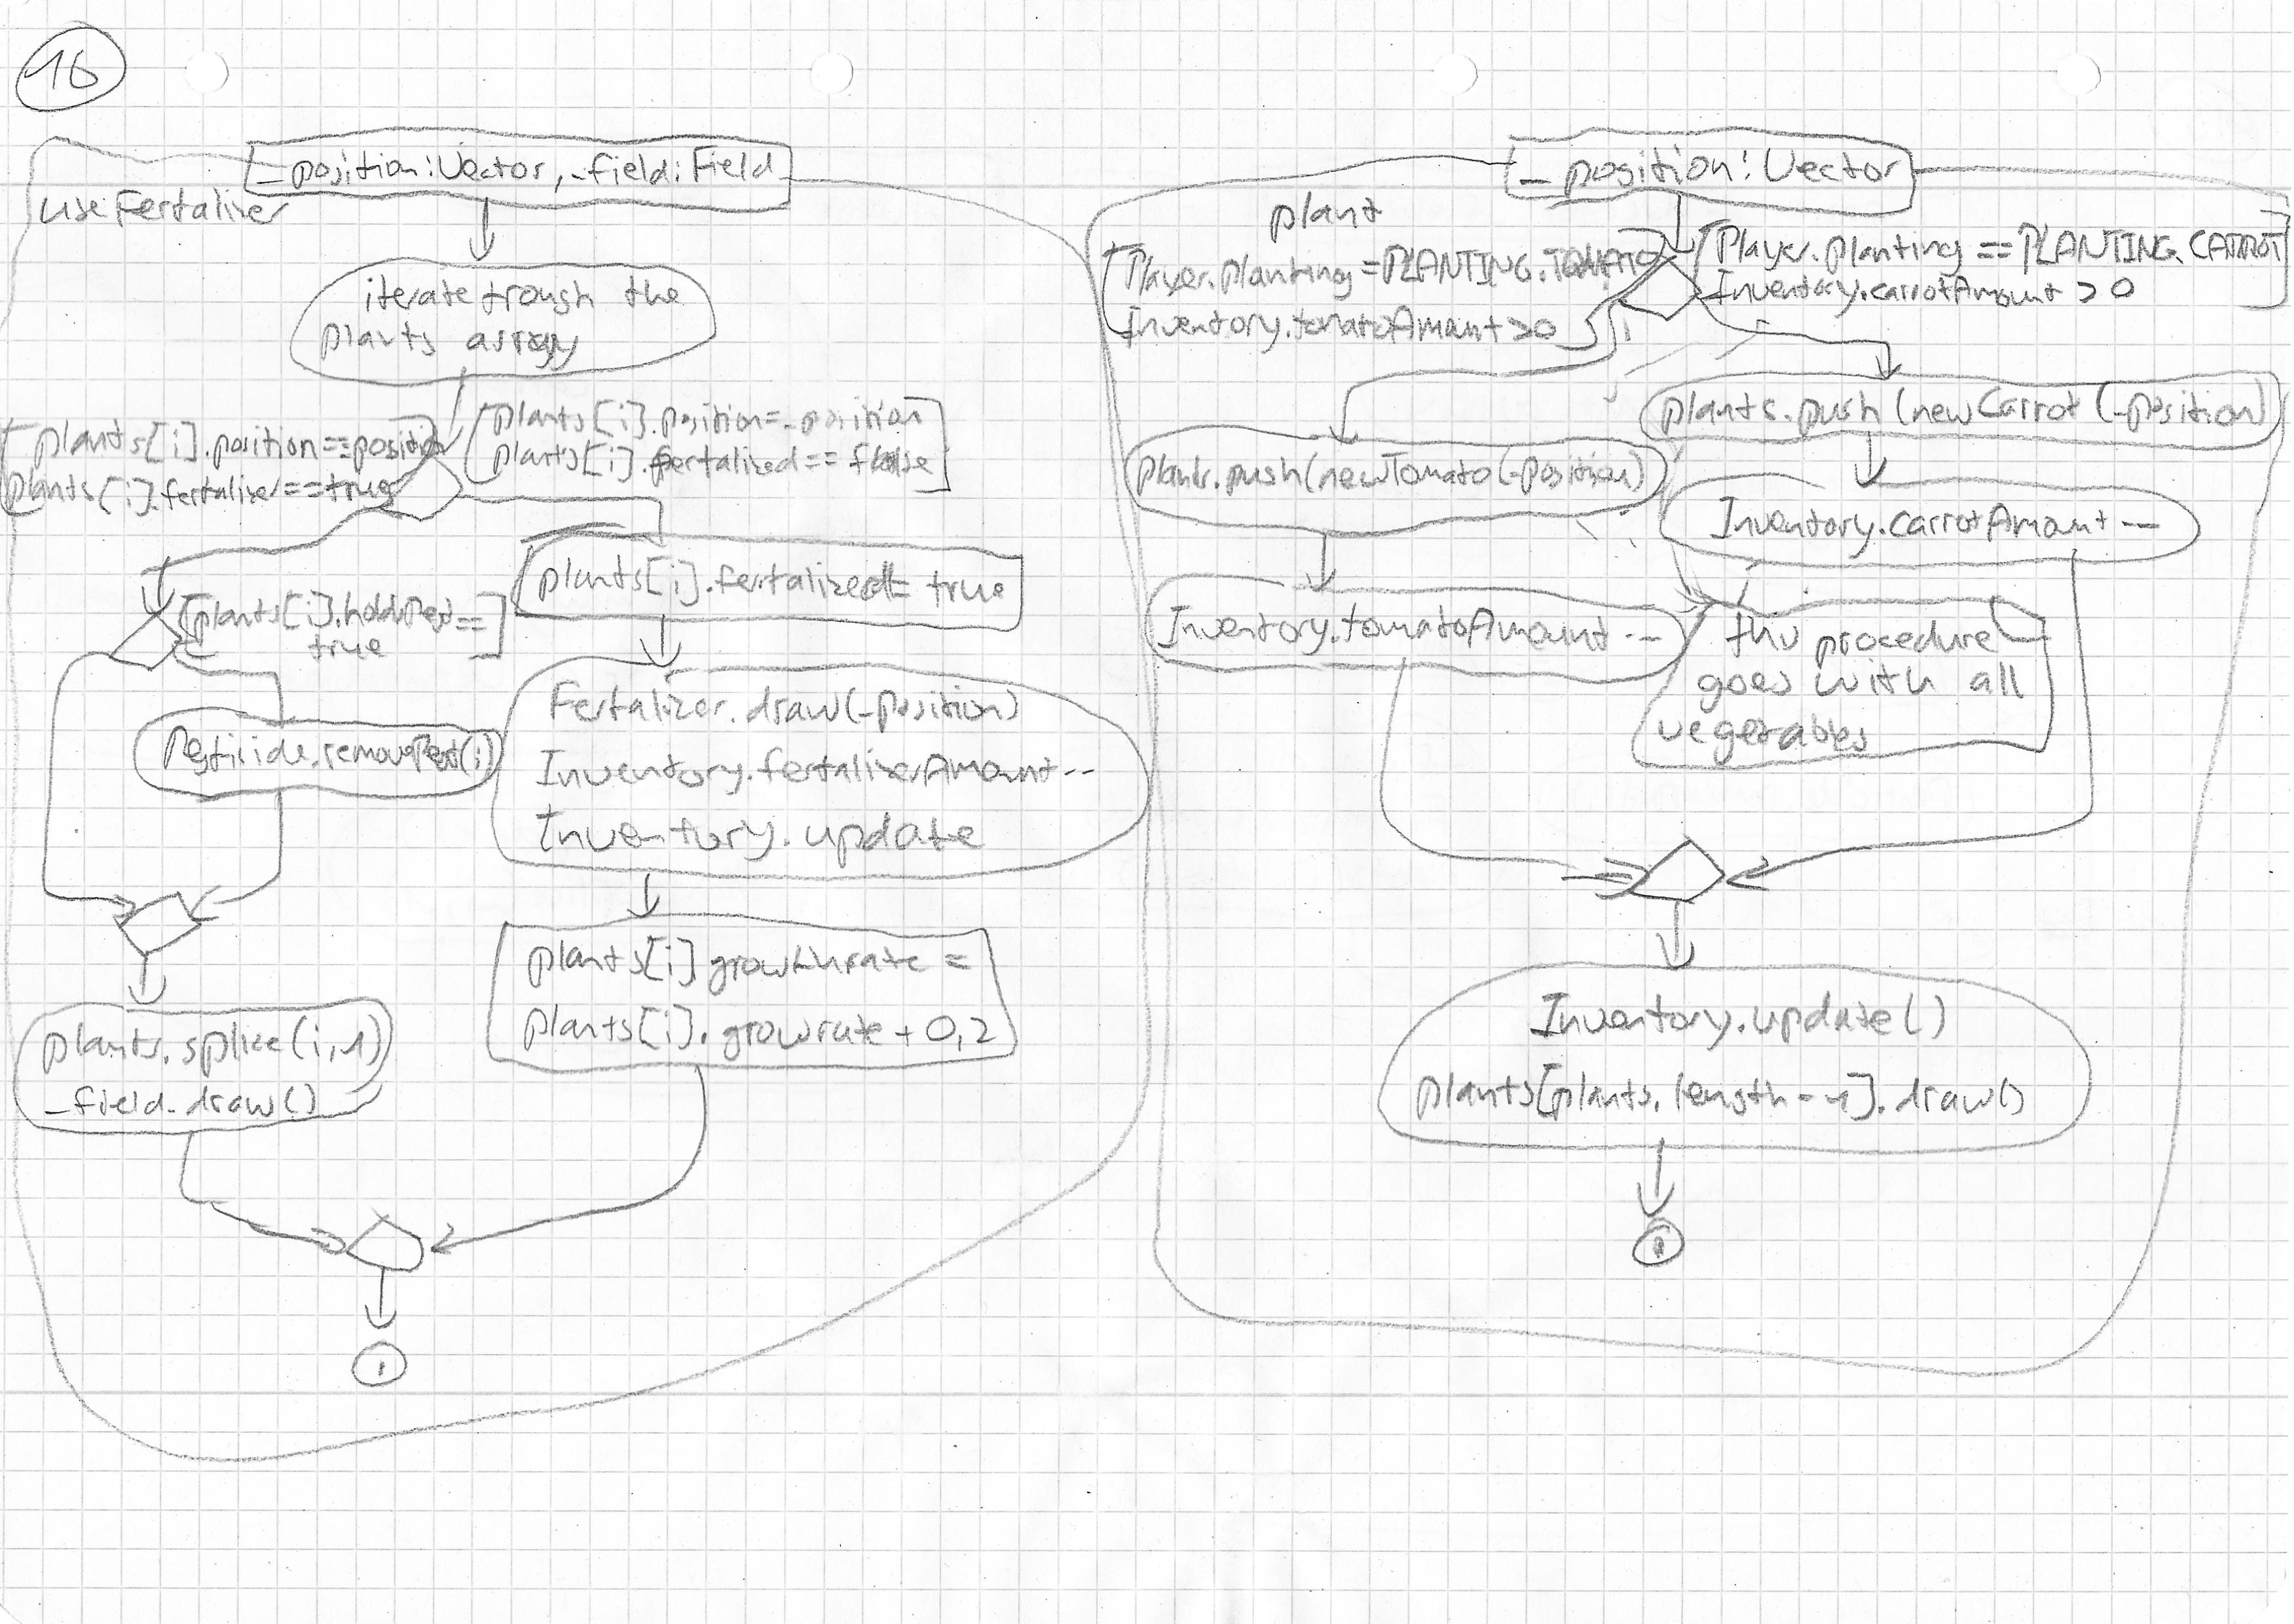 16
_position:Vector, _field:Field
useFertalizer
iterate trough the
plants array
plants[i].position==position
plants[i].fertalizer==true
plants[i].position=_position
plants[i].fertalized == false
[plants[i].holdsPest ==]
true
plants[i].fertalized = true
Pesticide.removePest(i)
Fertalizer.draw(_position)
Inventory.fertalizerAmount--
Inventory.update
plants[i] growthrate =
plants[i].growrate + 0,2
plants.splice(i,1)
_field.draw()
_position:Vector
plant
Player.planting =PLANTING.TOMATO
Inventory.tomatoAmount >0
Player.planting == PLANTING.CARROT
Inventory.carrotAmount > 0
plants.push(new Carrot(_position)
plants.push(new Tomato(_position)
Inventory.carrotAmount --
Inventory.tomatoAmount --
procedure
goes with all
vegetables
Inventory.update()
plants[plants.length-1].draw()